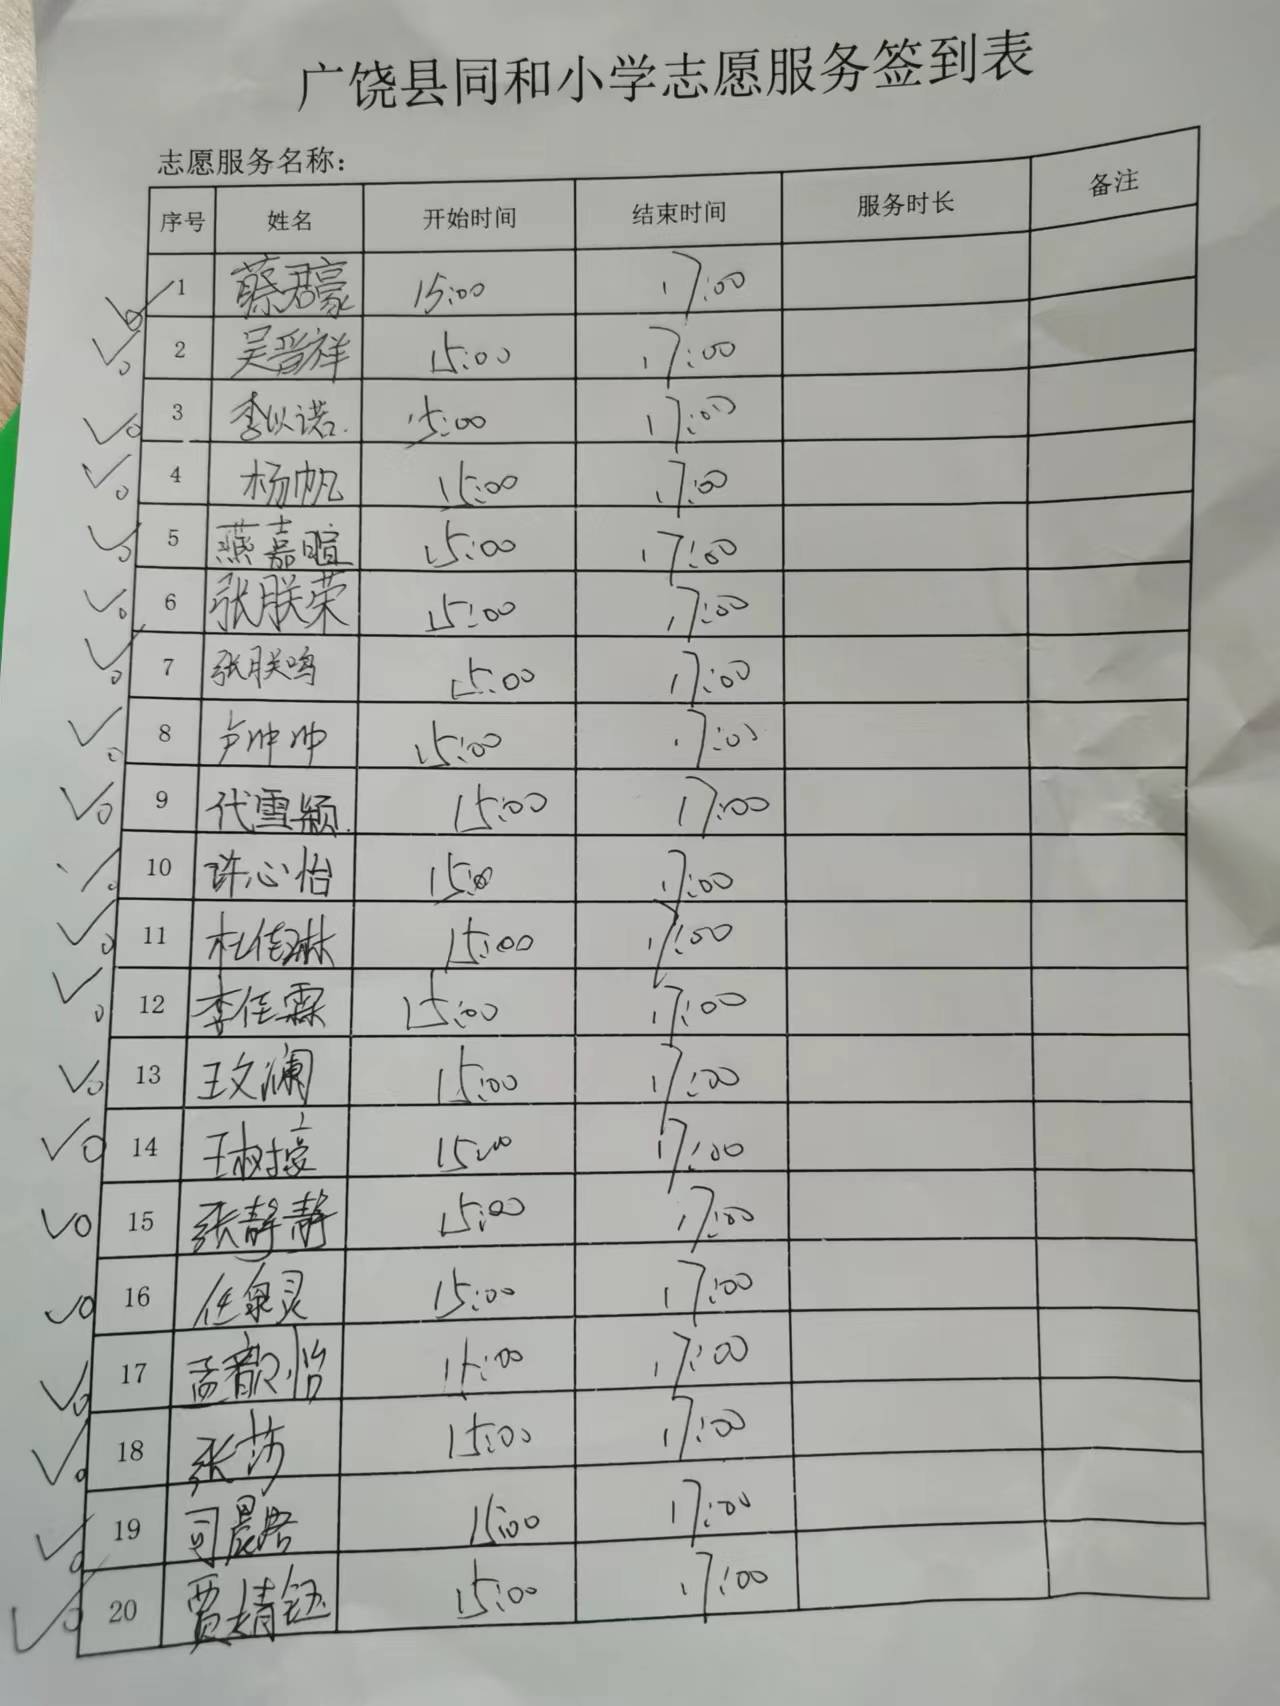 广饶县同和小学志愿服务签到表
志愿服务名称：
序号 姓名 开始时间 结束时间 服务时长 备注
1 蔡君豪 15:00 17:00
2 吴晋祥 15:00 17:00
3 李以诺 15:00 17:00
4 杨帆 15:00 17:00
5 燕嘉暄 15:00 17:00
6 张朕荣 15:00 17:00
7 张朕鸣 15:00 17:00
8 卢帅帅 15:00 17:00
9 代雪颖 15:00 17:00
10 许心怡 15:00 17:00
11 杜佳琳 15:00 17:00
12 李佳霖 15:00 17:00
13 王文澜 15:00 17:00
14 15:00 17:00
15 张静静 15:00 17:00
16 任泉灵 15:00 17:00
17 孟韵怡 17:00
18 张莎 15:00 17:00
19 15:00 17:00
20 贾婧钰 15:00 17:00